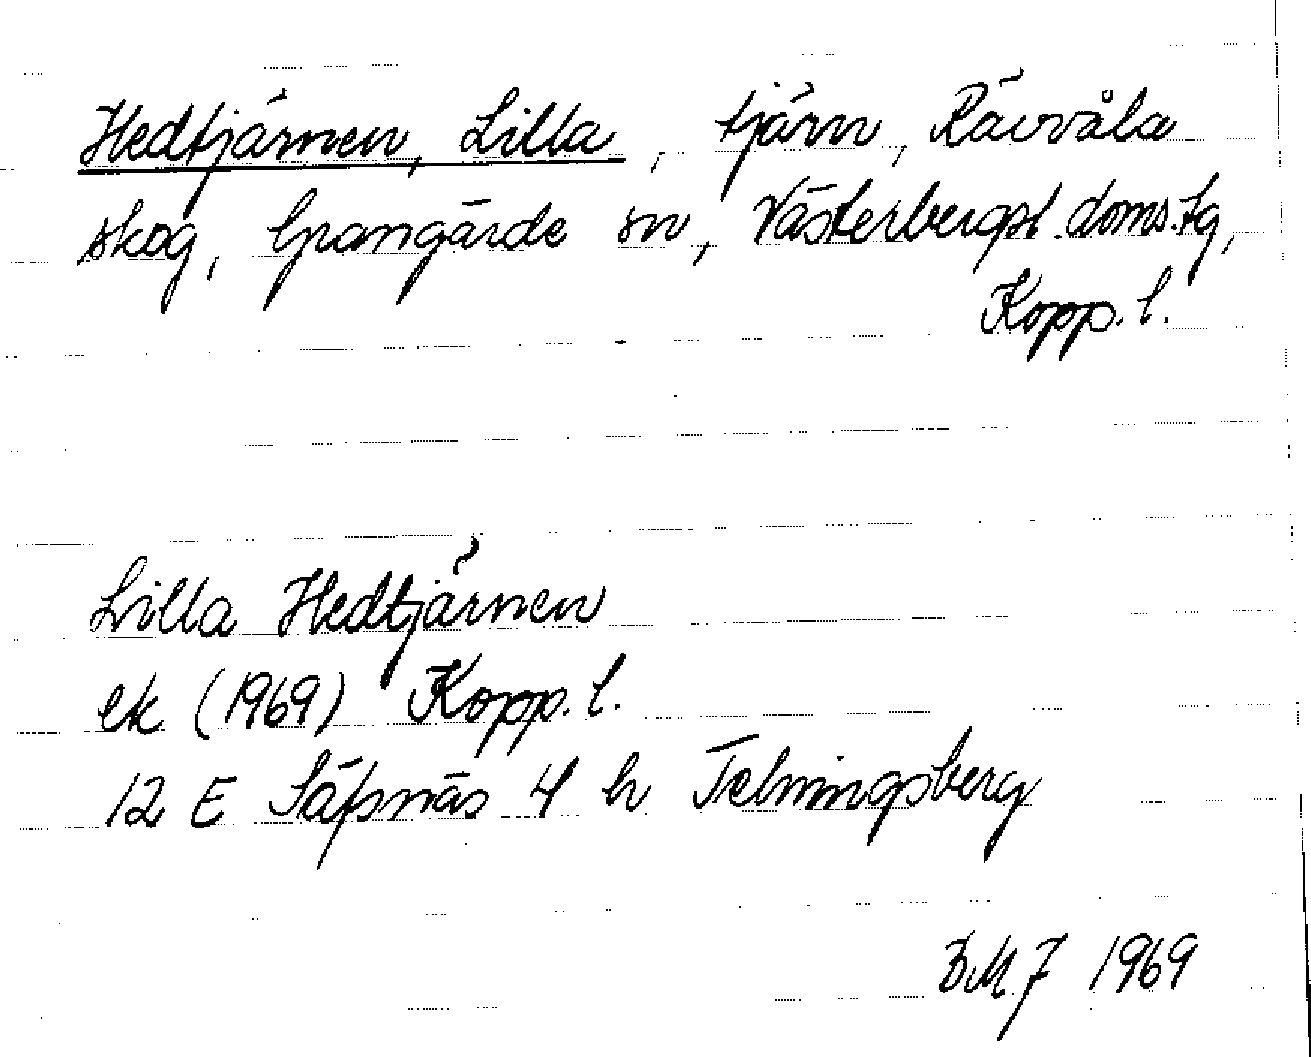 Hedtjärnen, Lilla, tjärn, Rävvåla
skog, Grangärde sn, Västerbergsl. doms.tg,
Kopp. l.
Lilla Hedtjärnen
ek (1969) Kopp. l.
12 E Säfsnäs 4 h Telningsberg
BMJ 1969